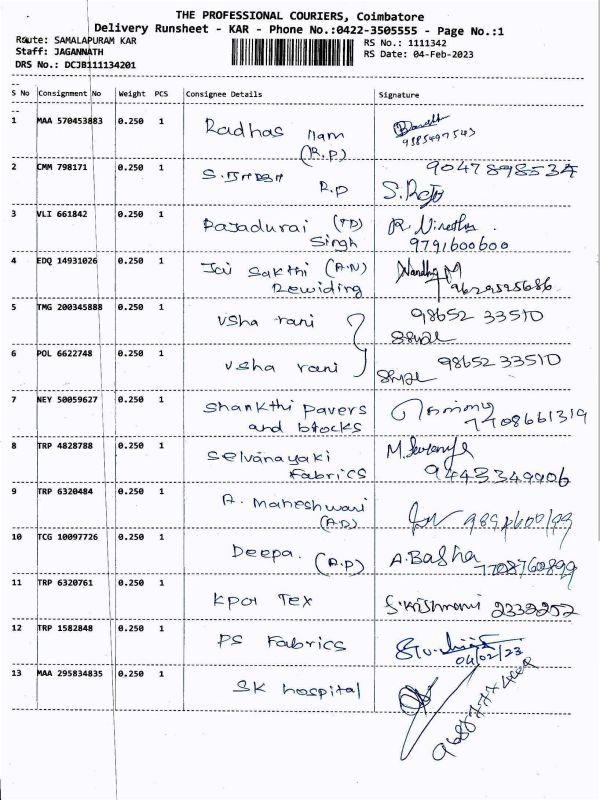 THE PROFESSIONAL COURIERS, Coimbatore
Delivery Runsheet - KAR - Phone No.:0422-3505555 - Page No.:1
Route: SAMALAPURAM KAR
Staff: JAGANNATH
DRS No.: DCJB111134201
RS No.: 1111342
RS Date: 04-Feb-2023
S No Consignment No Weight PCS Consignee Details Signature
1 MAA 570453883 0.250 1 Radhas
(R.P)
9385497543
2 CMM 798171 0.250 1 R.P 9047898534
S.Raja
3 VLI 661842 0.250 1 Rajadurai (TD)
Singh 9791600600
4 EDQ 14931026 0.250 1 Jai Sakthi (A.N)
Rewiding 9629525686
5 TMG 200345888 0.250 1 Usha rani 98652 33510
6 POL 6622748 0.250 1 Usha rani 98652 33510
7 NEY 50059627 0.250 1 Shankthi Pavers
and blocks 7708661319
8 TRP 4828788 0.250 1 Selvanayaki
Fabrics 9443349906
9 TRP 6320484 0.250 1 A. Maheshwari
(A.D)
10 TCG 10097726 0.250 1 Deepa. (A.P) A.Basha
7708760899
11 TRP 6320761 0.250 1 KPR Tex 2332252
12 TRP 1582848 0.250 1 PS Fabrics
04/02/23
13 MAA 295834835 0.250 1 SK hospital